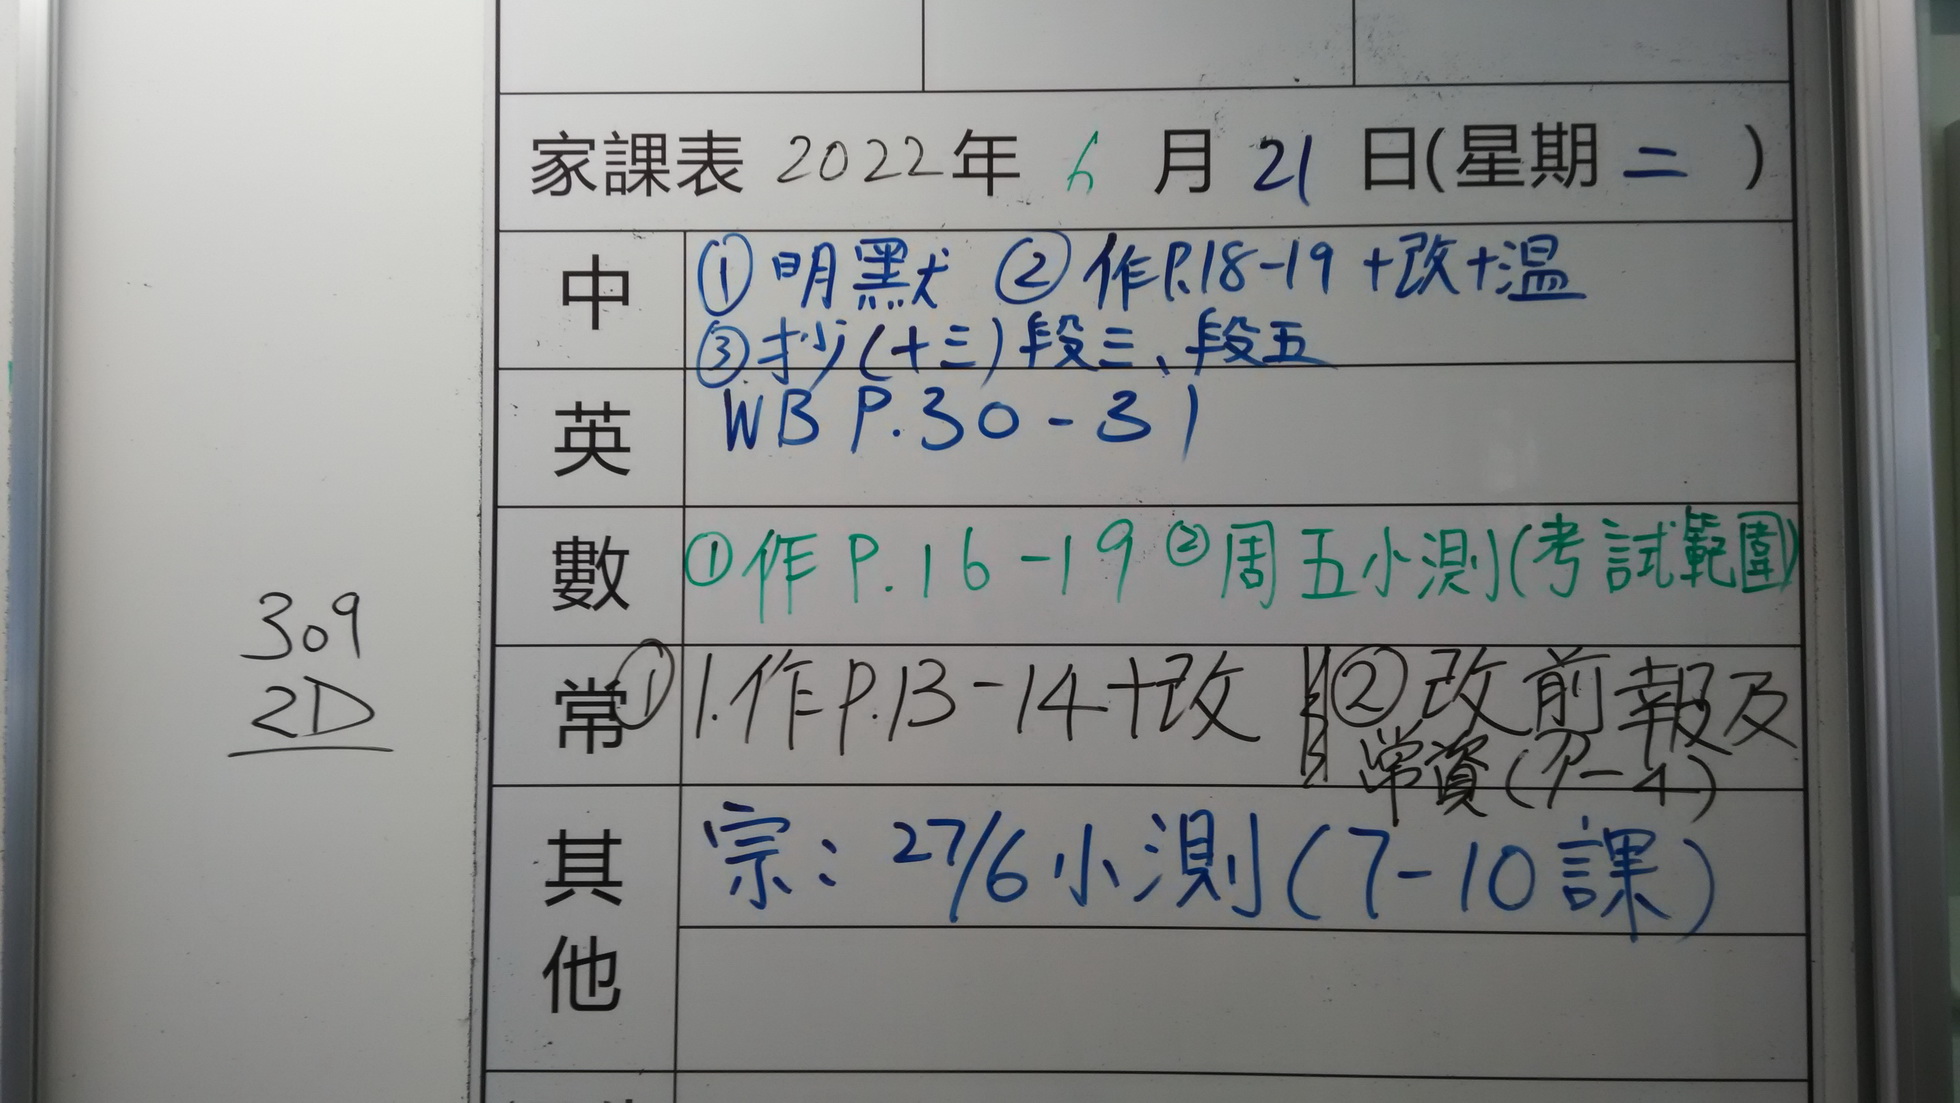 家課表 2022年 6 月 21 日(星期 二 )
中 ①明默 ②作P.18-19+改+温
③抄(十三)段三、段五
英 WB P.30-31
數 ①作P.16-19 ②周五小測(考試範圍)
常 ① 1.作P.13-14+改 ②改前報及
常資(7-4)
其他 宗：27/6小測(7-10課)
309
2D